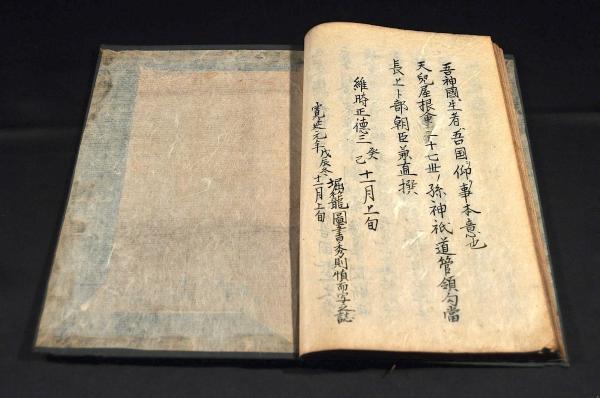 吾神國生者吾国仰事本意也
天兒屋根二十七世ノ孫神祇道管領勾當
長上卜部朝臣兼直撰
維時正德三癸巳十一月上旬
堀籠圖書秀則慎而字之誌
寛延元年戊辰冬十一月上旬